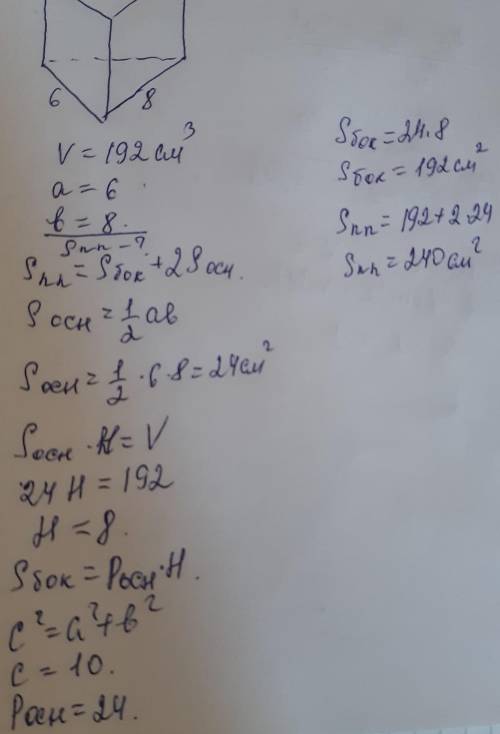 6 8
V = 192 см³
a = 6
в = 8.
Sпп - ?
Sпп = Sбок + 2Sосн.
Sосн = 1/2 ав
Sосн = 1/2 · 6 · 8 = 24 см²
Sосн · H = V
24 H = 192
H = 8.
Sбок = Pосн · H.
c² = a² + в²
c = 10.
Pосн = 24.
Sбок = 24 · 8
Sбок = 192 см²
Sпп = 192 + 2 · 24
Sпп = 240 см²